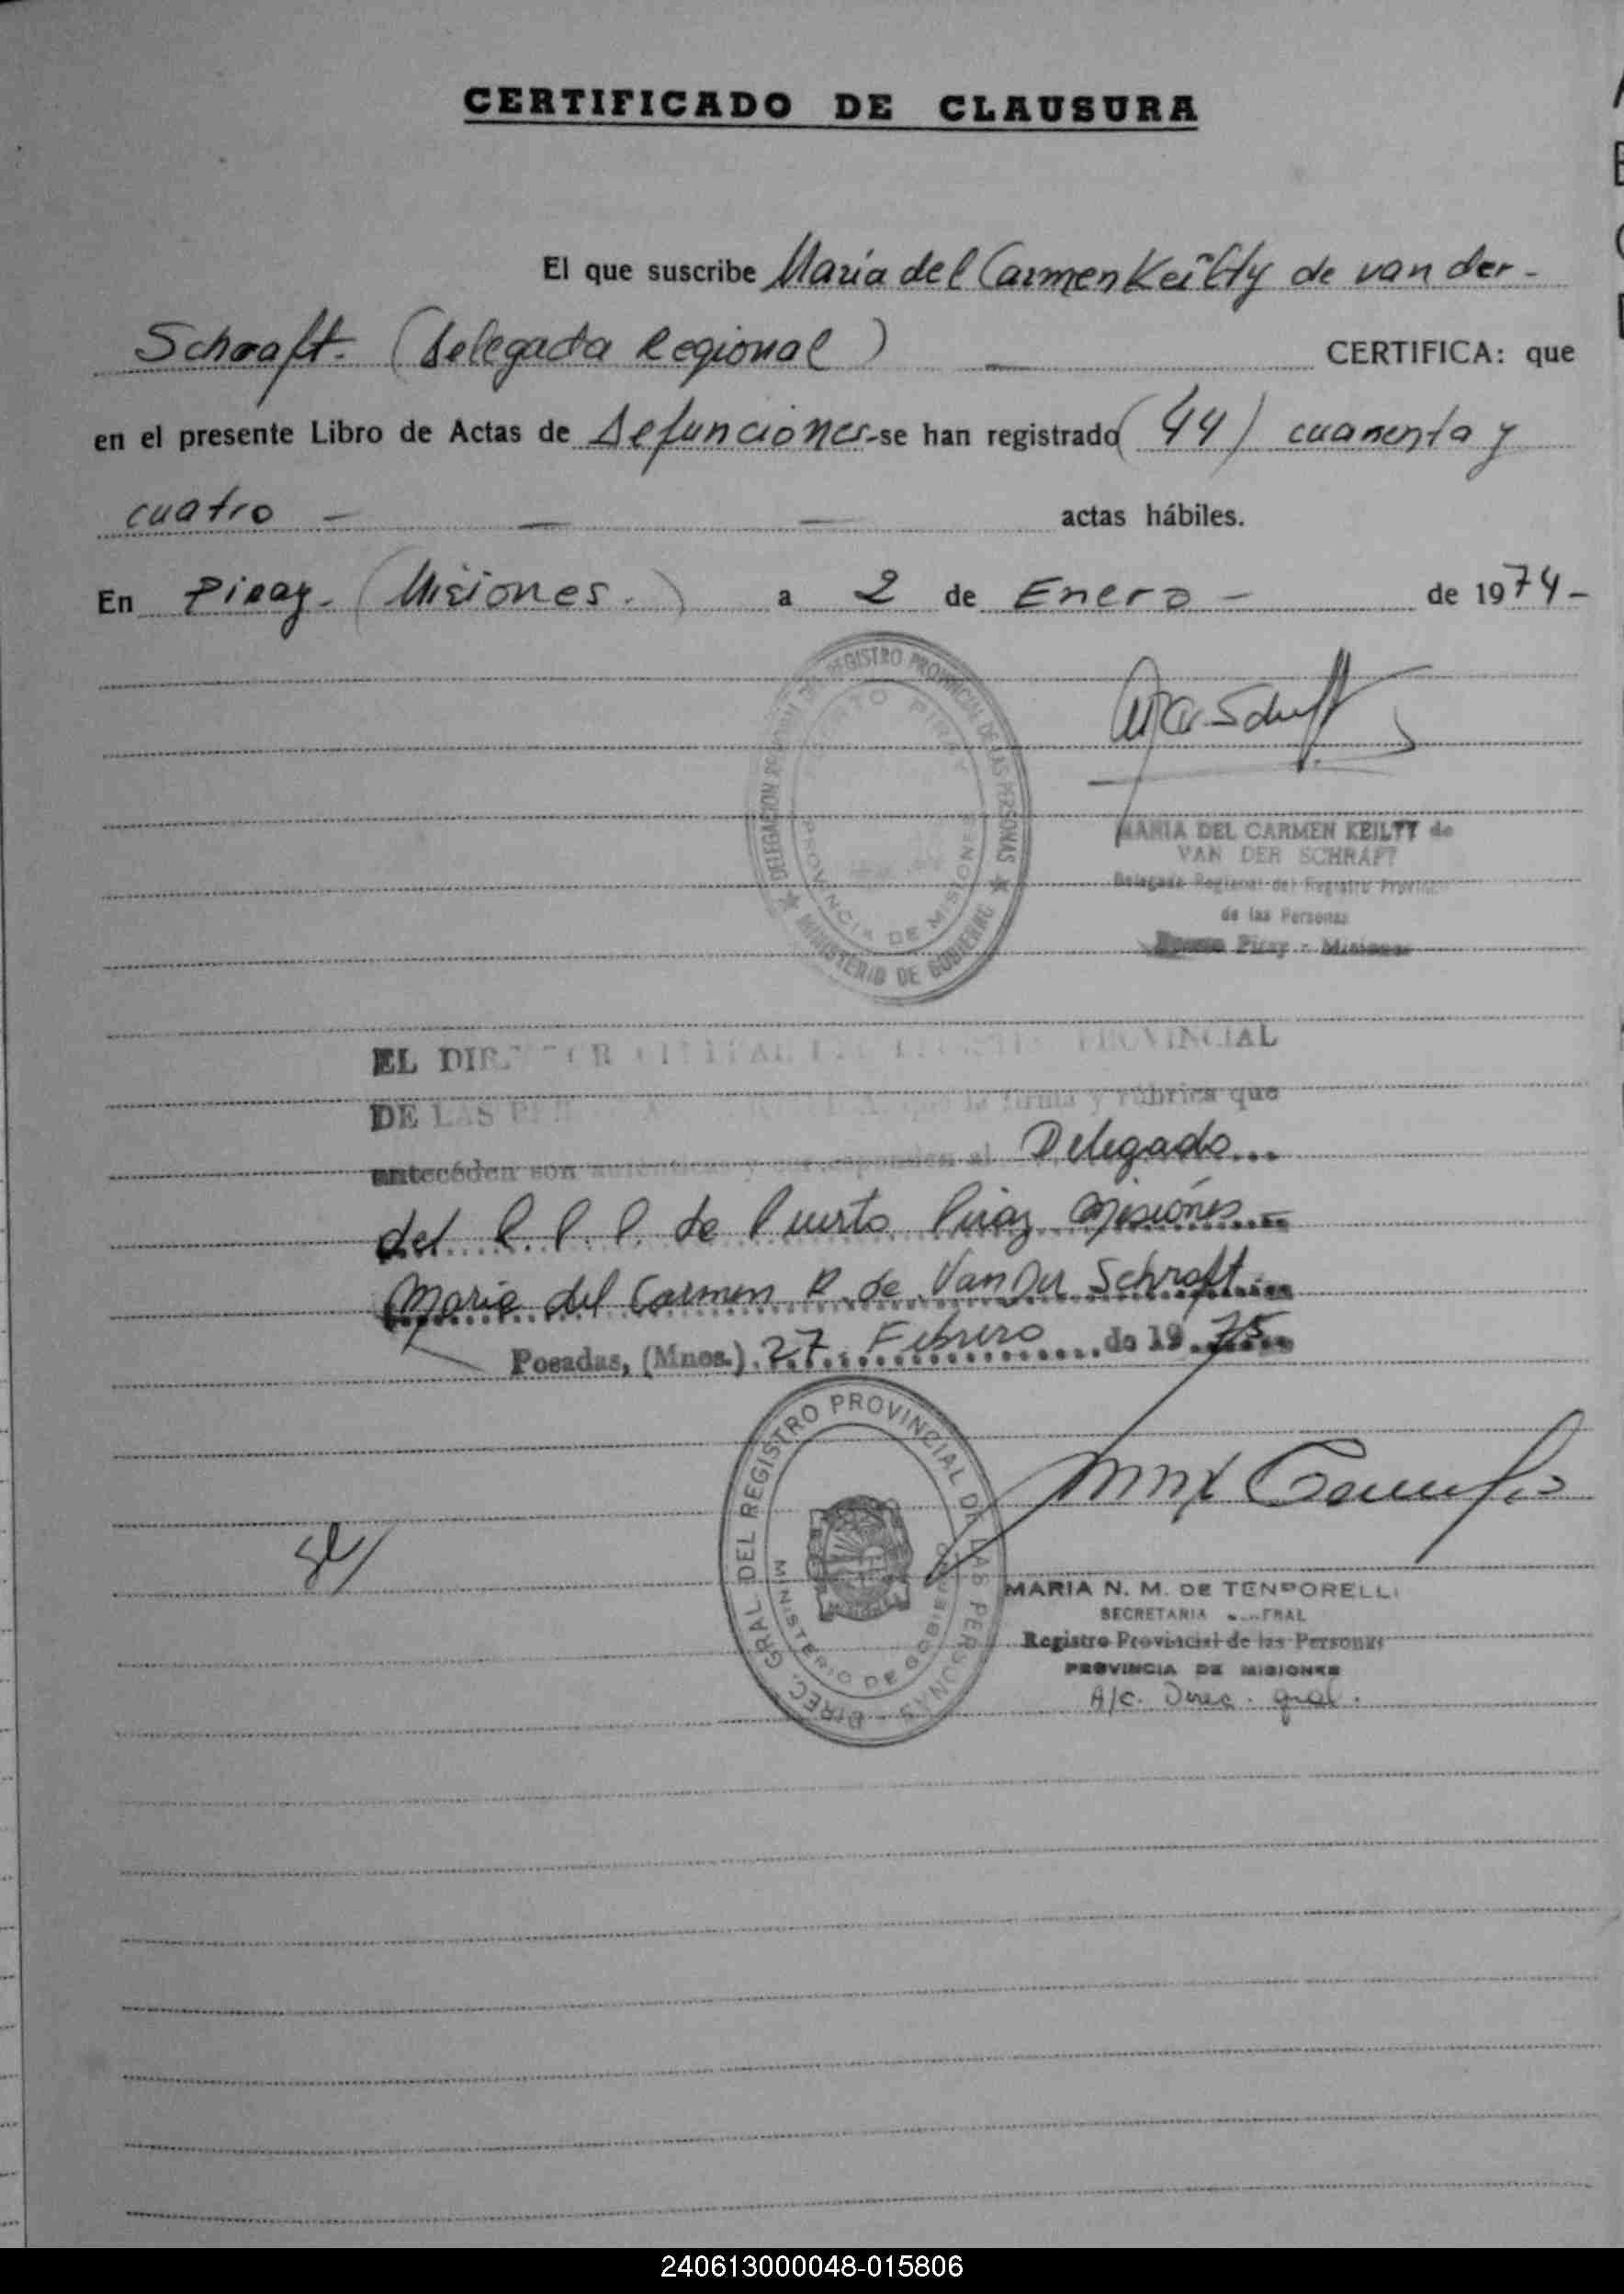 CERTIFICADO DE CLAUSURA
El que suscribe Maria del Carmen Keiltty de van der-
Schraft. (Delegada Regional) — CERTIFICA: que
en el presente Libro de Actas de Defunciones-se han registrado (44) cuarenta y
cuatro — — — actas hábiles.
En Piray- (Misiones.) a 2 de Enero - de 1974-
DELEGACION REGISTRO PROVINCIAL DE LAS PERSONAS
PUERTO PIRAY
PROVINCIA DE MISIONES
★ MINISTERIO DE GOBIERNO ★
MARIA DEL CARMEN KEILTY de
VAN DER SCHRAFT
Delegada Regional del Registro Provincial
de las Personas
Puerto Piray - Misiones
EL DIRECTOR PROVINCIAL
DE LAS que la firma y rúbrica que
antecéden son auténticas y corresponden al Delegado...
del R. P. P. de Puerto Piray Misiones
Maria del Carmen K. de Van Der Schraft
Posadas, (Mnes.) 27 Febrero de 19 75
DIREC. GRAL. DEL REGISTRO PROVINCIAL DE LAS PERSONAS -
MINISTERIO DE GOBIERNO
MARIA N. M. DE TEMPORELLI
SECRETARIA GENERAL
Registro Provincial de las Personas
PROVINCIA DE MISIONES
A/C. Direc. gral.
240613000048-015806